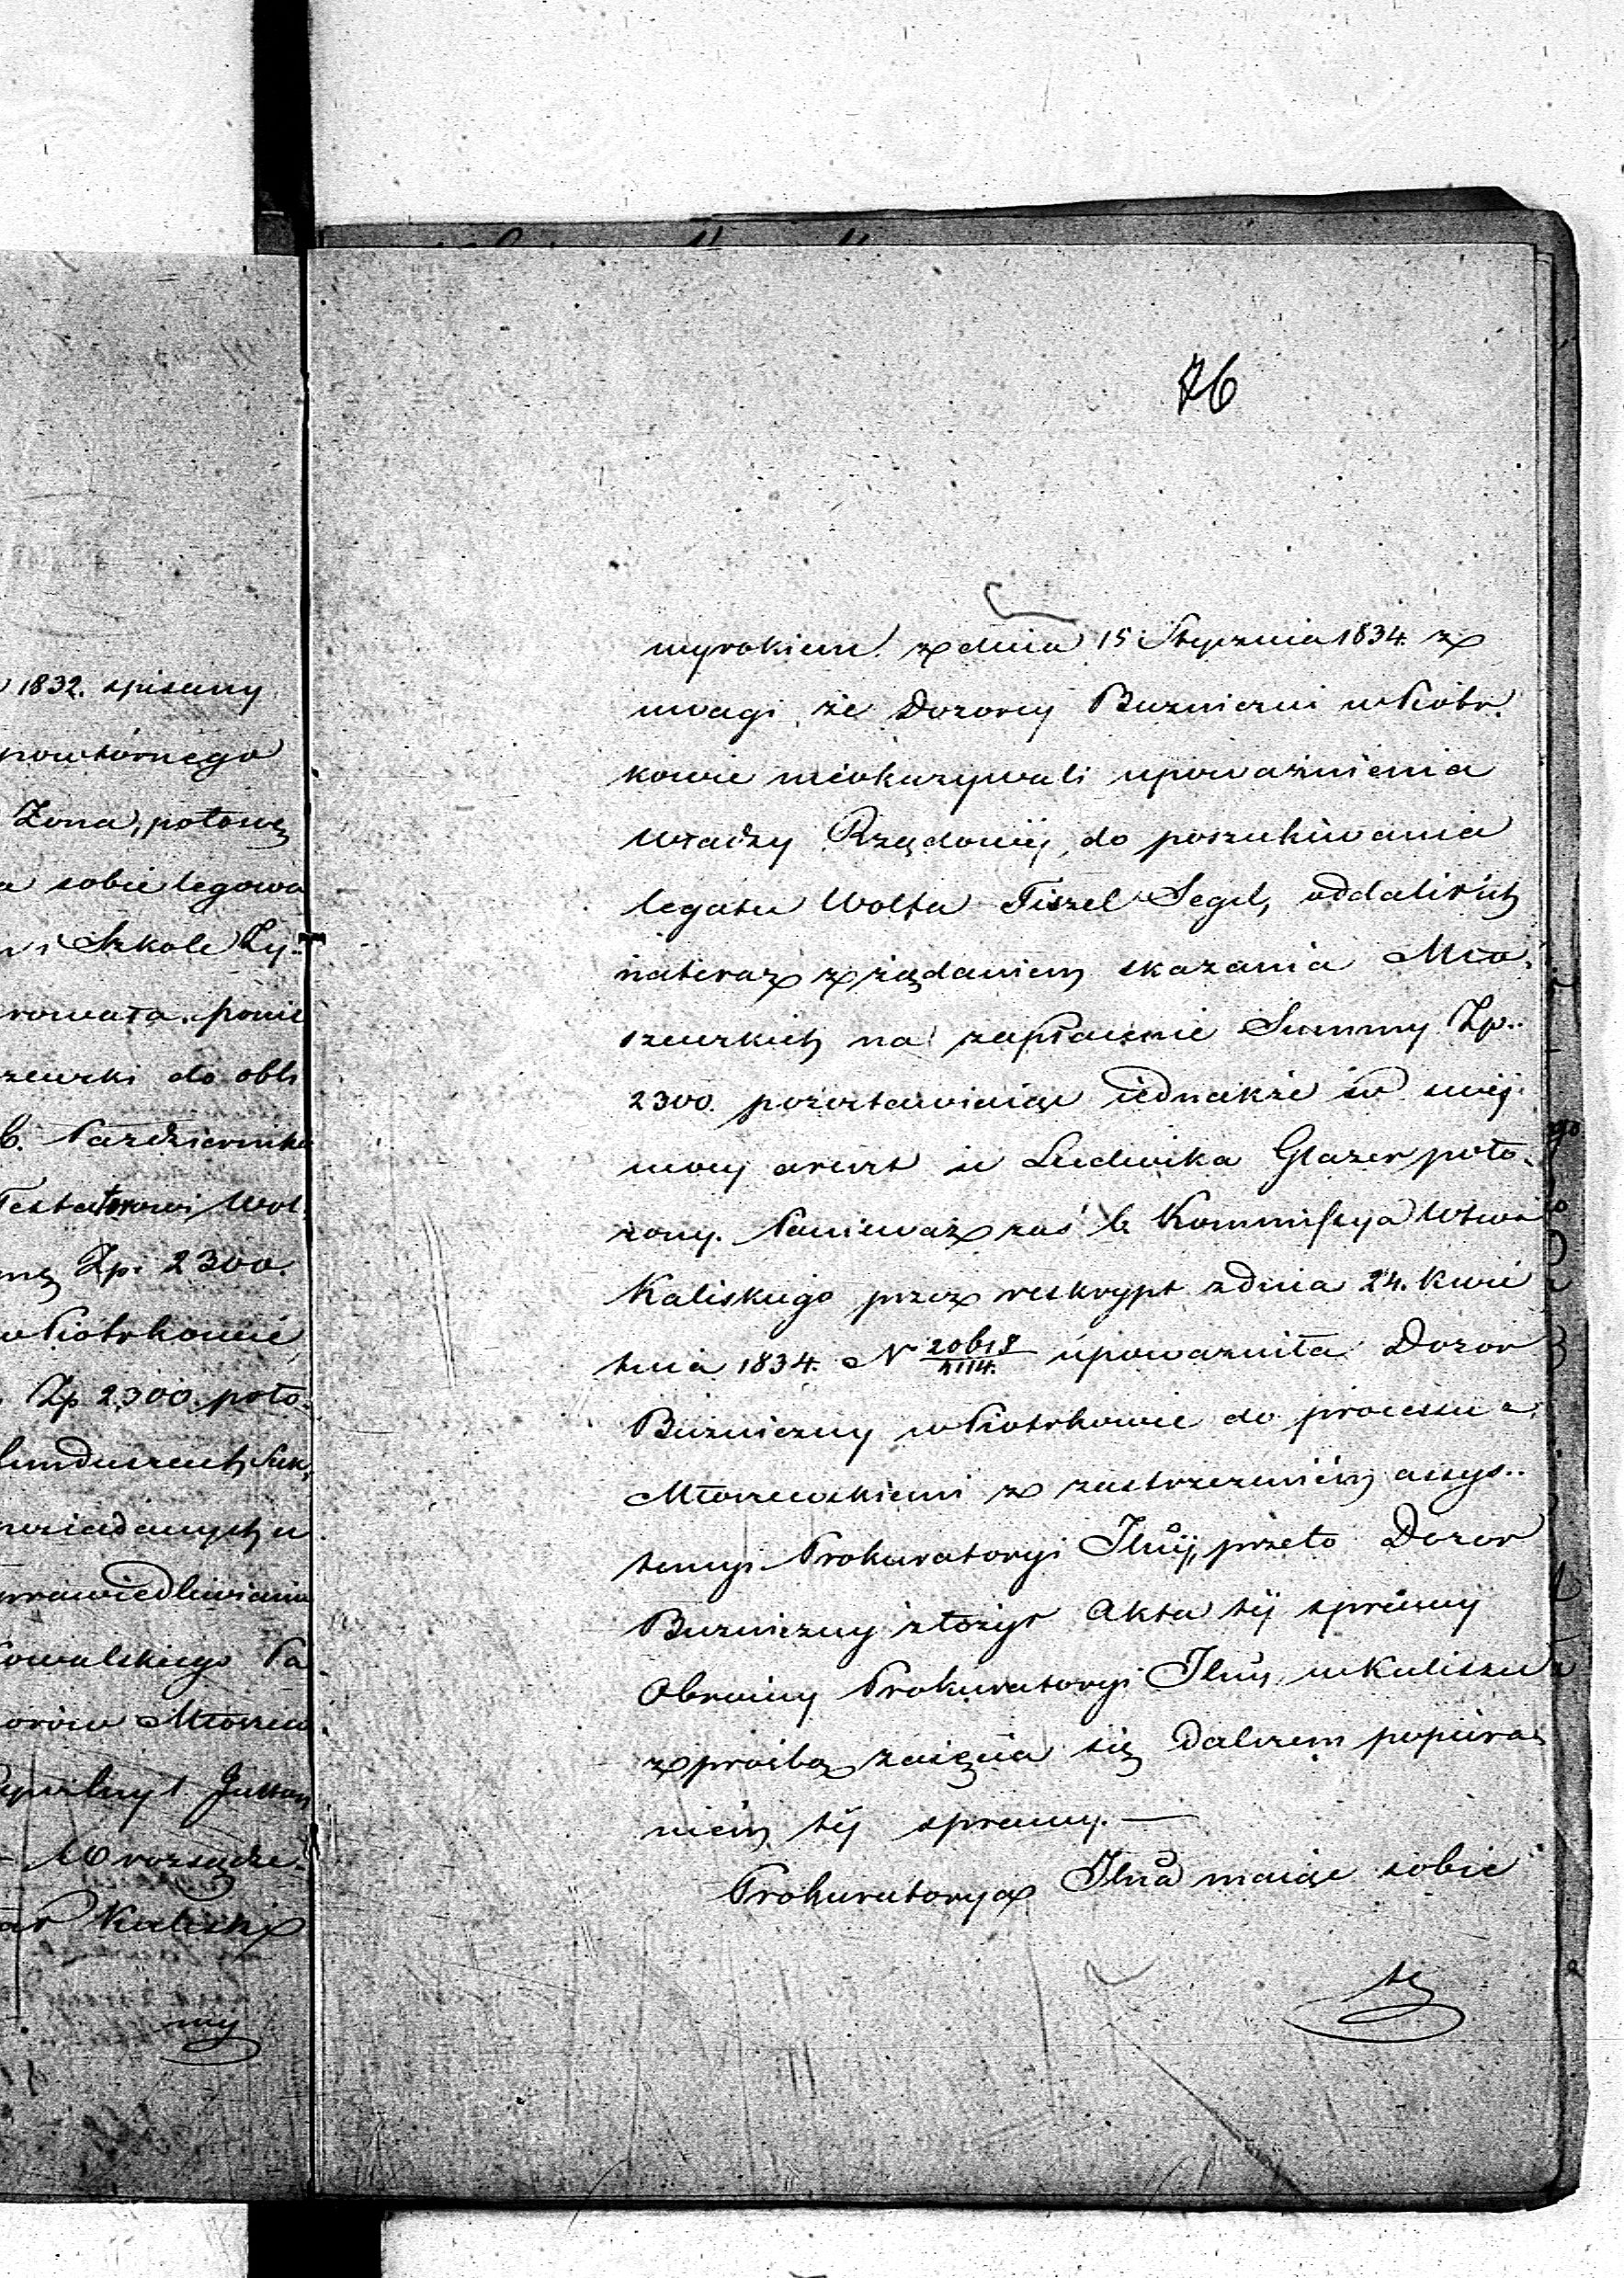 1832. spisany
powtórnego
Żona, połowę
sobie legowa
i Szkole Ży¨
rowała. ponie
szewski do obli
6. Października
Testatorowi Wol
Zp. 2300.
w Piotrkowie
Zp. 2300. poło¨
funduszach Suk¨
posiadanych u
prawiedliwiania
owalskiego Pa
Młoszew
Gutton
W rozsądze¨
Kaliski
my
76
wyrokiem z dnia 15 Stycznia 1834. z
uwagi, że Dozorcy Bużniczni w Piotr¨
kowie nieokazywali upoważnienia
Władzy Rządowéj, do poszukiwania
legatu Wolfa Fiszel Segel, oddalił ich
nateraz z żądaniem skazania Mło¨
szewskich na zapłacenie Summy Zp.
2300. pozostawiając iednakże w swéj
mocy areszt u Ludwika Glazer poło¨
żony. Ponieważ zaś b. Kommissya Wtwa
Kaliskiego przez reskrypt z dnia 24. Kwie
tnia 1834. N 20618/4114. upoważniła Dozor
Bużniczny w Piotrkowie do processu z
Młoszewskiemi z zastrzeżeniem assys¨
tencyi Prokuratoryi Jlnéj, przeto Dozor
Bużniczny złożył Akta téj sprawy
Obrońcy Prokuratoryi Jlnéj w Kaliszu
z prośbą zaięcia się dalszem popiera¨
niem téj sprawy. —
Prokuratorya Jlna maiąc sobie
tę